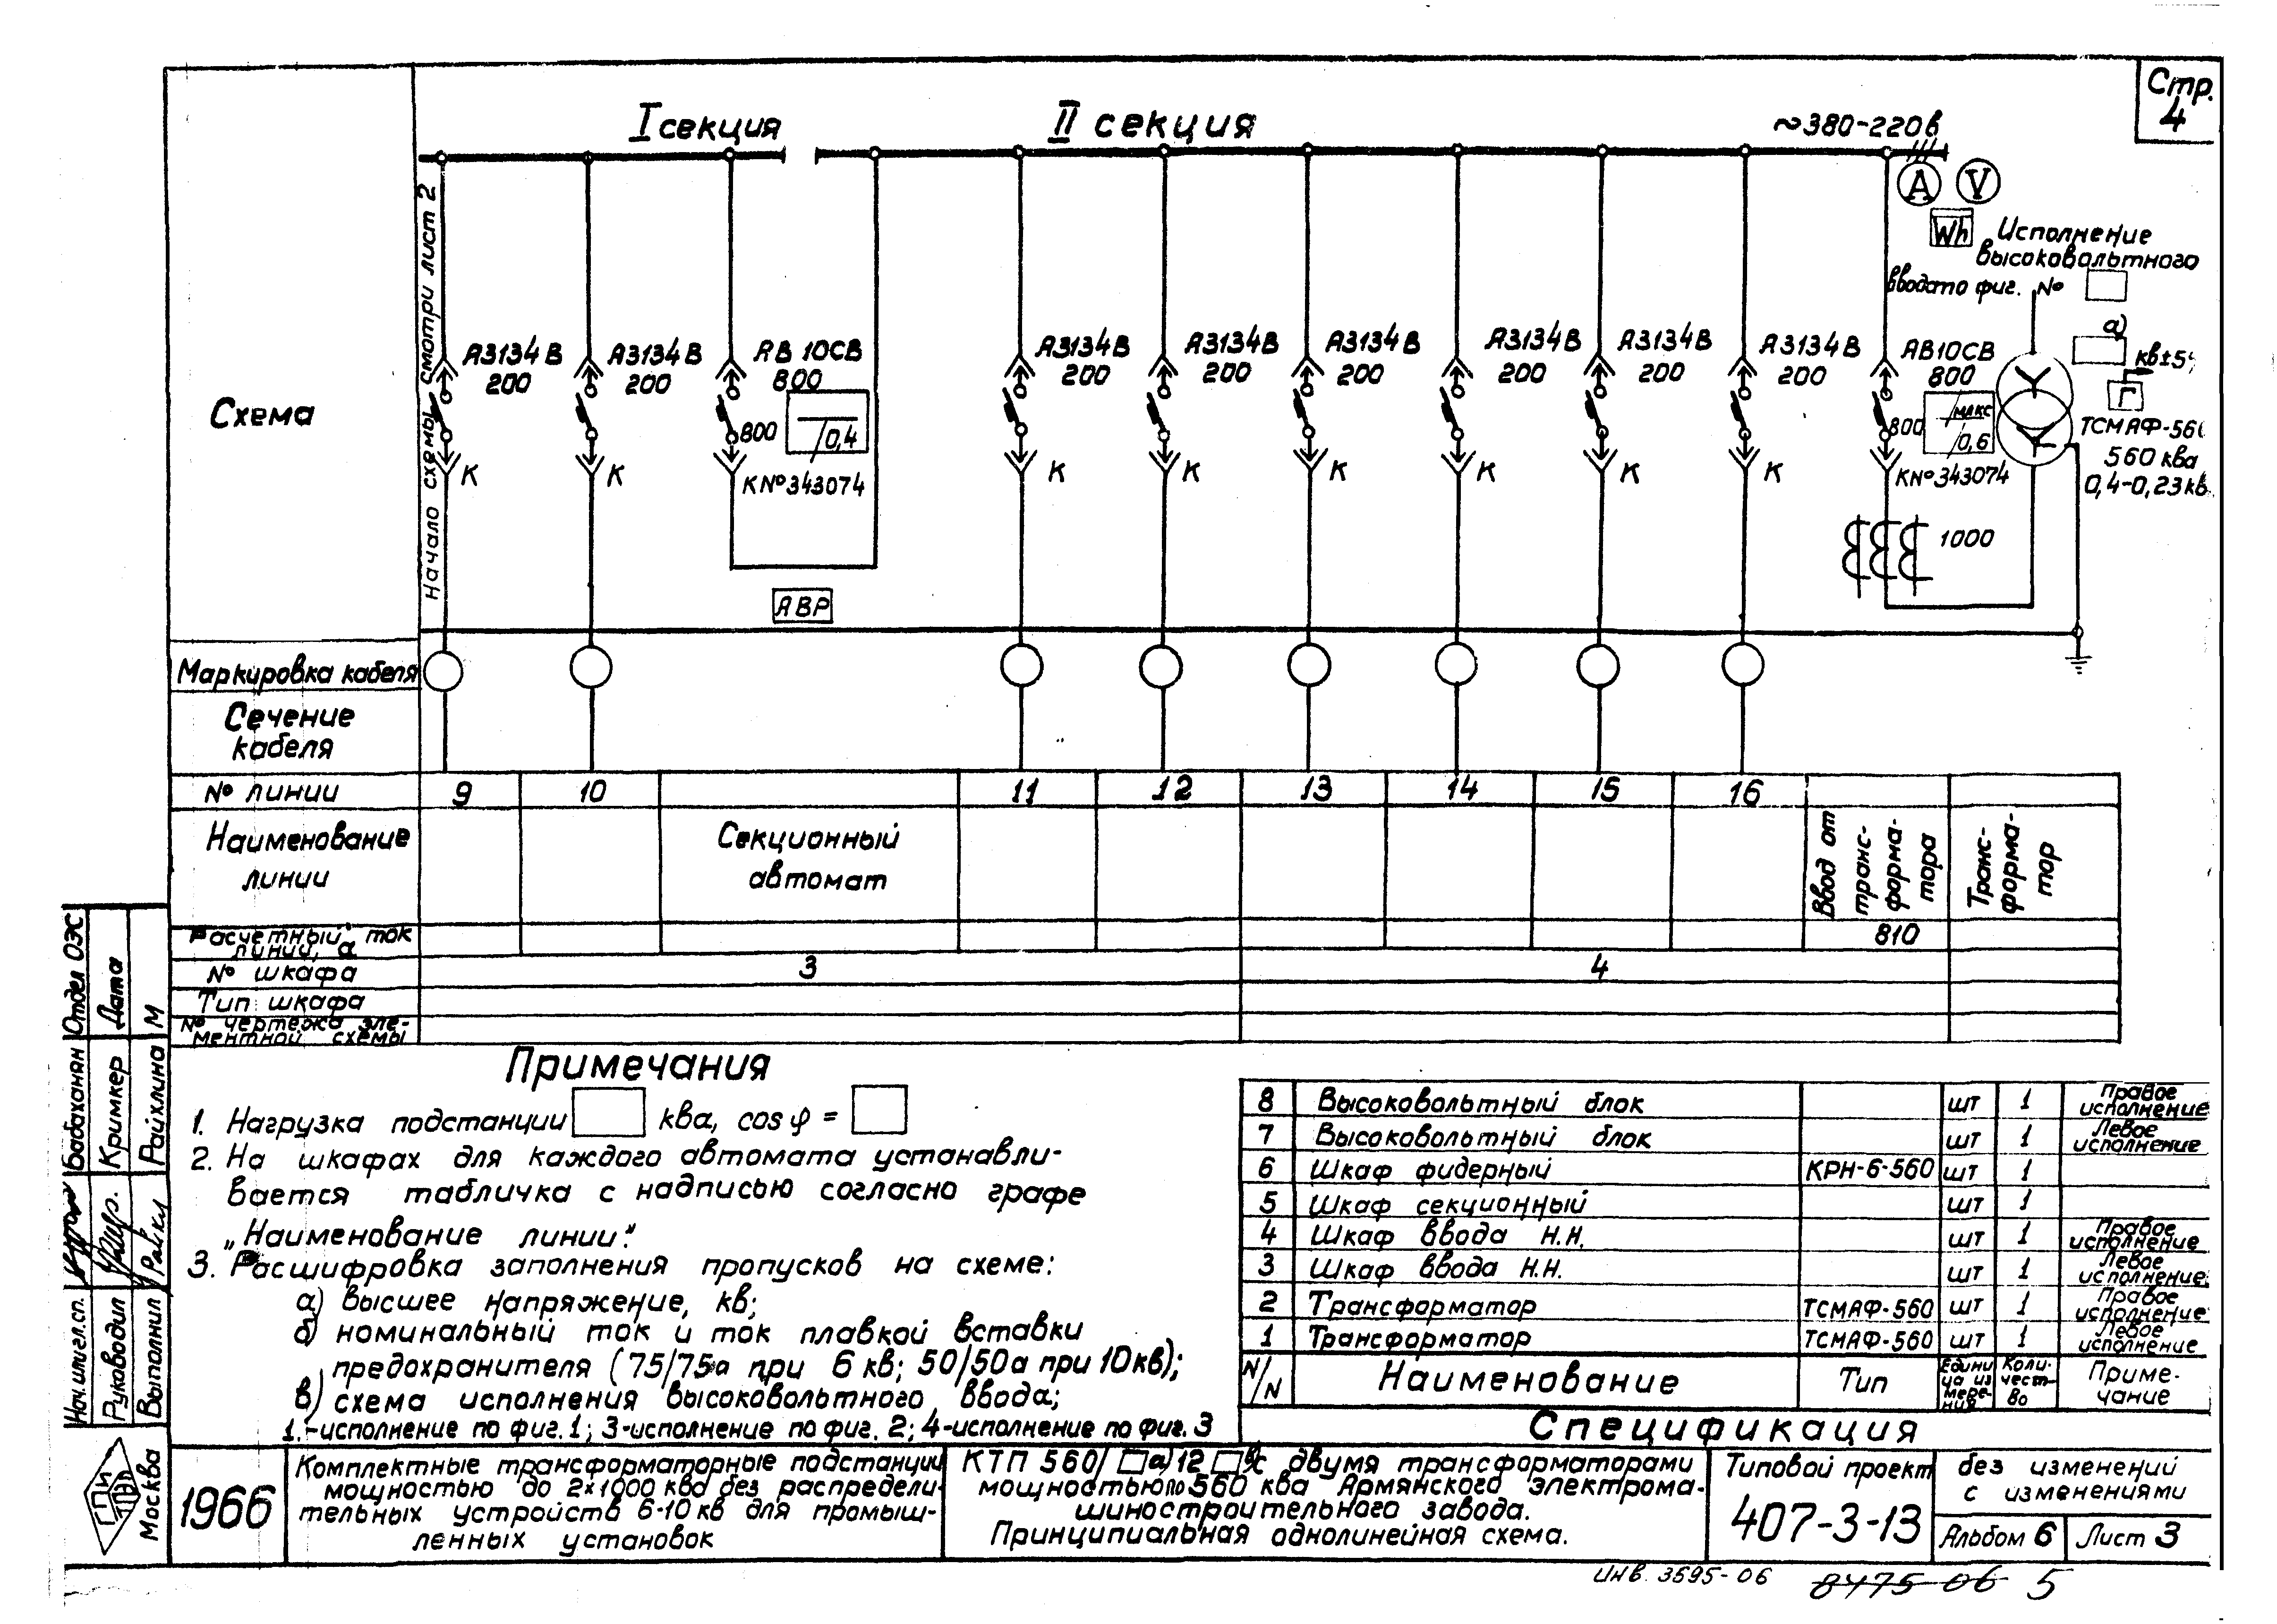 Стр.
4
I секция
II секция
~380-220в
A
V
Wh
Исполнение
высоковольтного
ввода по фиг. №
а)
кв±5
Г
ТСМАФ-56
560 ква
0,4-0,23кв
Начало схемы смотри лист 2
А3134В
200
К
А3134В
200
К
АВ 10СВ
800
800
0,4
К№343074
АВР
А3134В
200
К
А3134В
200
К
А3134В
200
К
А3134В
200
К
А3134В
200
К
А3134В
200
К
АВ10СВ
800
800
макс
0,6
К№343074
1000
Схема
Маркировка кабеля
Сечение
кабеля
№ линии 9 10 11 12 13 14 15 16
Наименование
линии
Секционный
автомат
Ввод от
транс-
форма-
тора
Транс-
форма-
тор
Расчетный ток
линии, а
810
№ шкафа 3 4
Тип шкафа
№ чертежа эле-
ментной схемы
Примечания
1. Нагрузка подстанции ква, cos φ =
2. На шкафах для каждого автомата устанавли-
вается табличка с надписью согласно графе
„Наименование линии".
3. Расшифровка заполнения пропусков на схеме:
а) высшее напряжение, кв;
б) номинальный ток и ток плавкой вставки
предохранителя (75/75а при 6 кв; 50/50а при 10кв);
в) схема исполнения высоковольтного ввода;
1.-исполнение по фиг.1; 3-исполнение по фиг. 2; 4-исполнение по фиг. 3
8 Высоковольтный блок шт 1 Правое исполнение
7 Высоковольтный блок шт 1 Левое исполнение
6 Шкаф фидерный КРН-6-560 шт 1
5 Шкаф секционный шт 1
4 Шкаф ввода Н.Н. шт 1 Правое исполнение
3 Шкаф ввода Н.Н. шт 1 Левое исполнение
2 Трансформатор ТСМАФ-560 шт 1 Правое исполнение
1 Трансформатор ТСМАФ-560 шт 1 Левое исполнение
N/N Наименование Тип Единица измерения Коли-чест-во Приме-чание
Спецификация
Отдел ОЭС
Дата
М
Бабаханян
Кримкер
Райхлина
Нач.или гл.сп.
Руководил
Выполнил
ГПИ
ТПЭП
Москва
1966
Комплектные трансформаторные подстанции
мощностью до 2×1000 ква без распредели-
тельных устройств 6-10 кв для промыш-
ленных установок
КТП 560/□а) 12 □в)с двумя трансформаторами
мощностью по 560 ква Армянского электрома-
шиностроительного завода.
Принципиальная однолинейная схема.
Типовой проект
407-3-13
без изменений
с изменениями
Альбом 6
Лист 3
Инв. 3595-06
8475-06 5